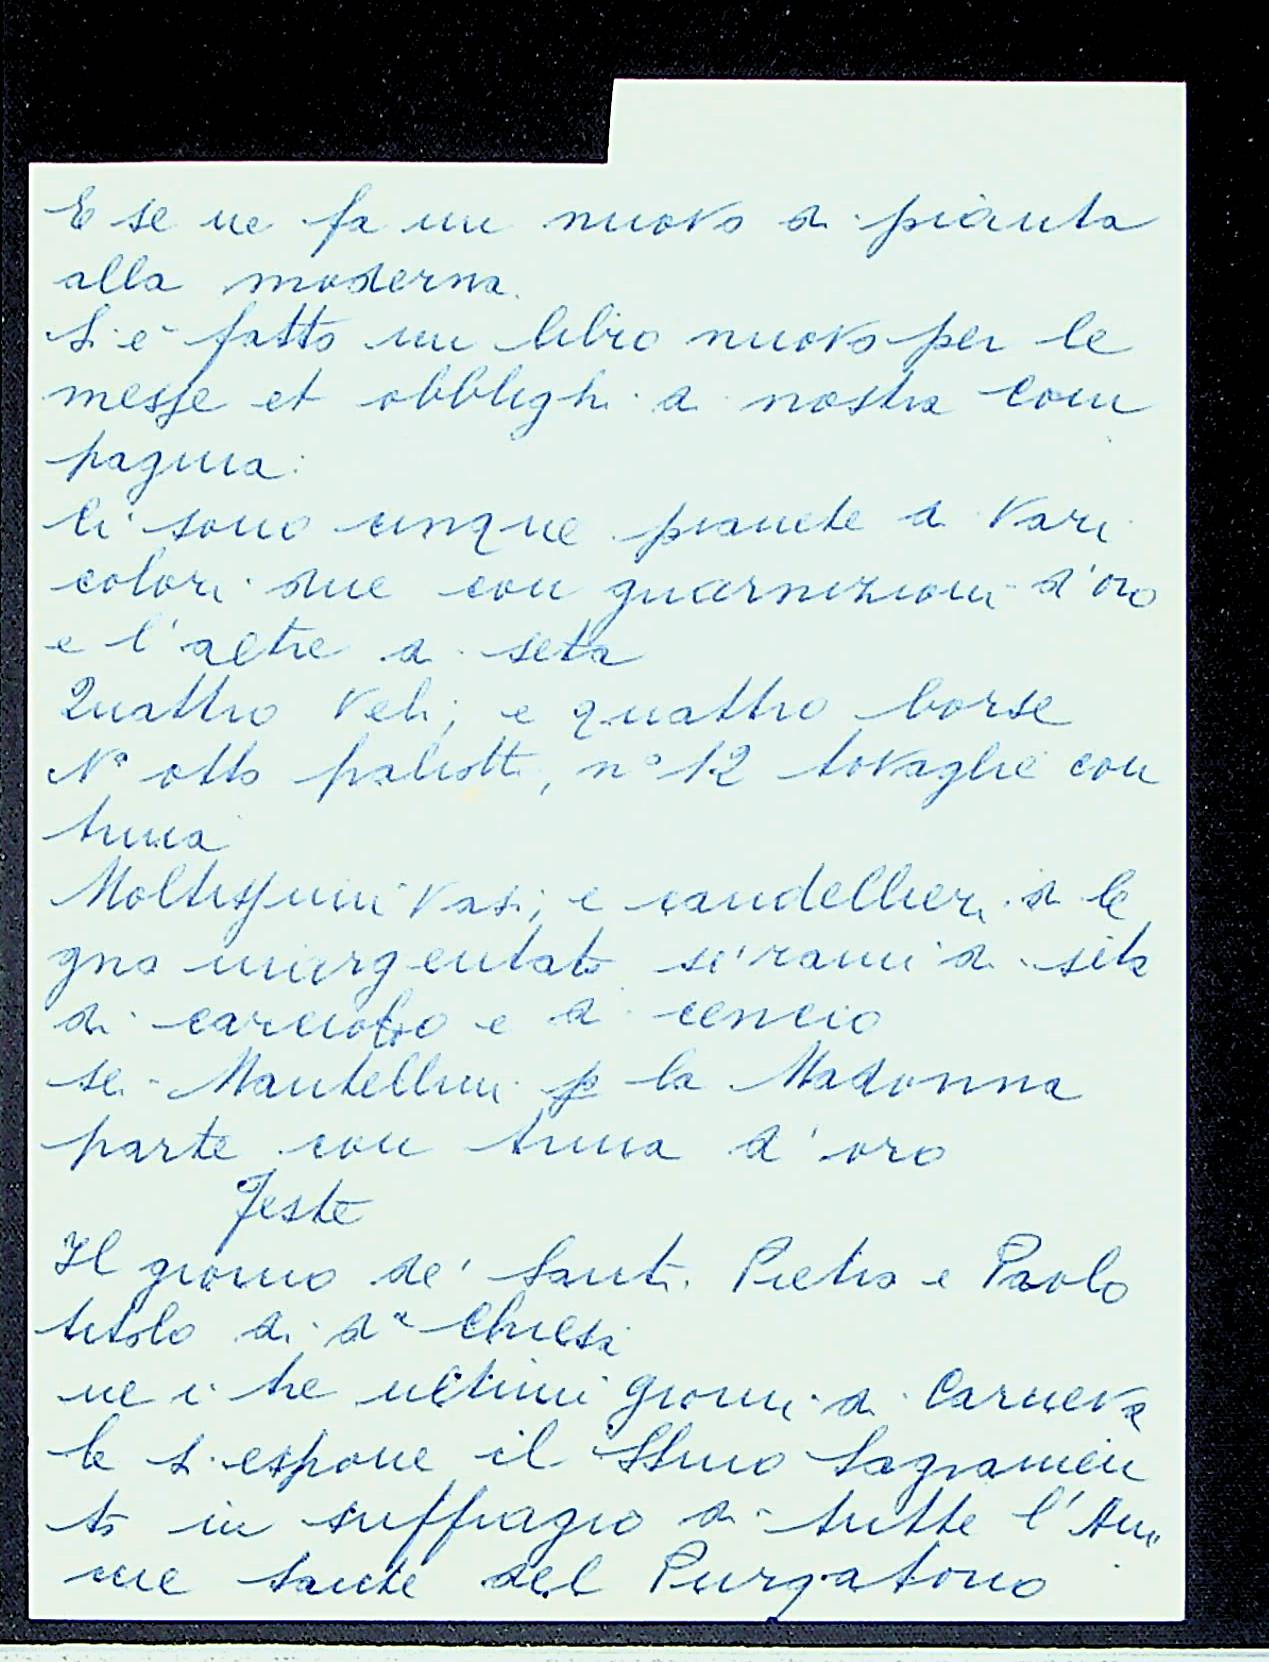 E se ne fa un nuovo di pianta
alla moderna.
Si è fatto un libro nuovo per le
messe et obblighi di nostra Com
pagnia:
Ci sono cinque pianete di vari
colori due con guarnizioni d'oro
e l'altre di seta
Quattro veli; e quattro borse
N° otto paliotti, n° 12 tovaglie con
trina
Moltissimi vasi; e candellieri di le
gno inargentato si'rami di seta
di carciofo e di cencio
sei Mantellini p la Madonna
parte con trina d'oro
Feste
Il giorno de' Santi Pietro e Paolo
titolo di da Chiesa
ne i tre ultimi giorni di Carneva
le si espone il SSmo Sagramen
to in suffragio di tutte l'Ani
me sante del Purgatorio